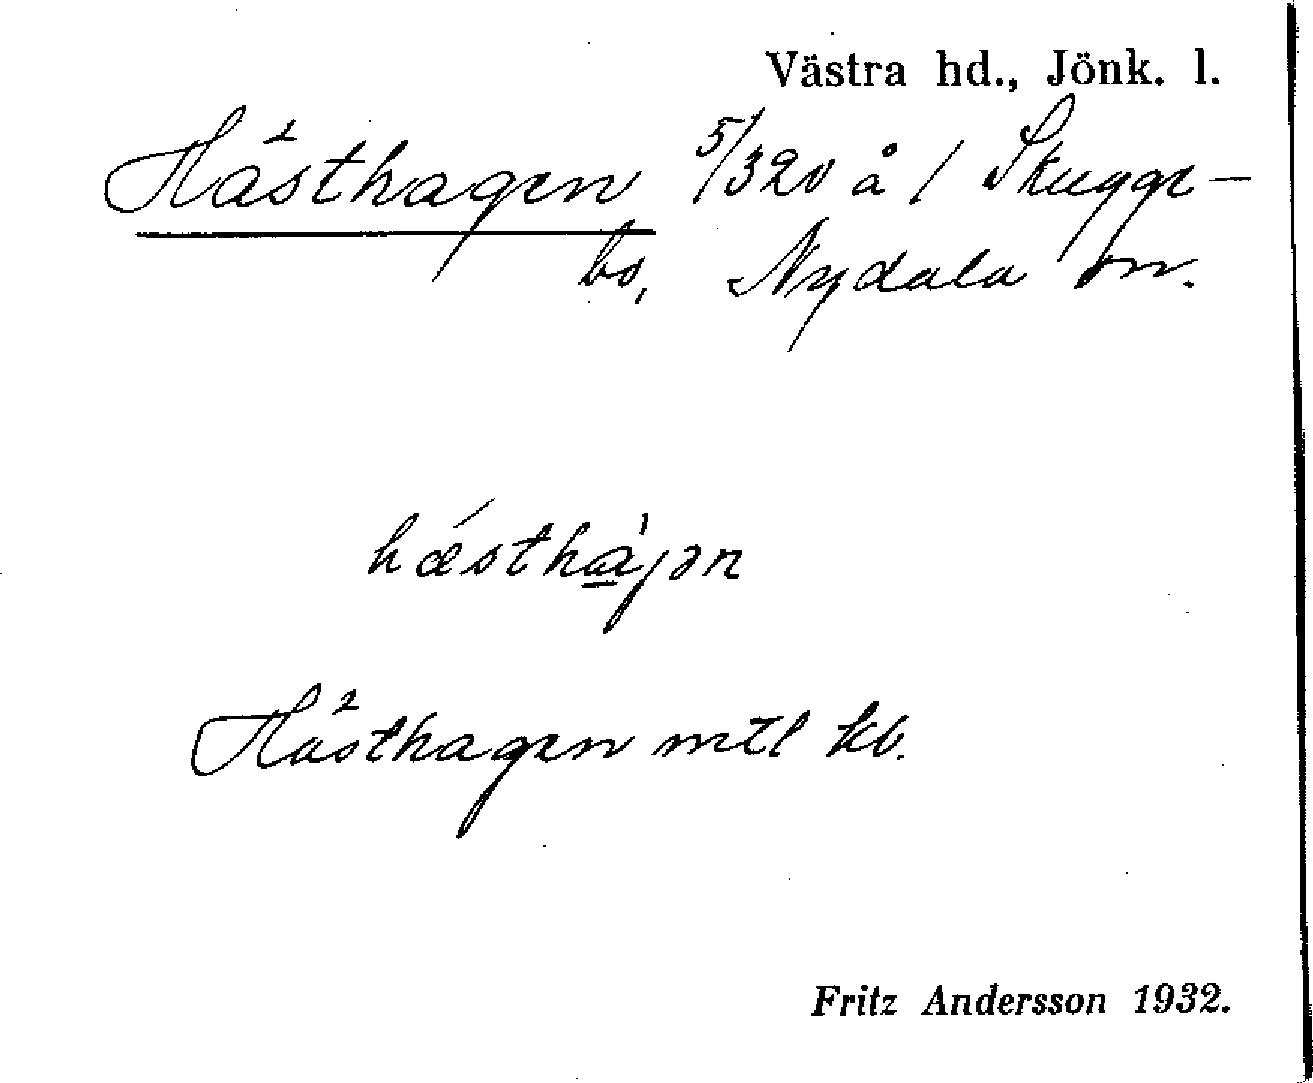 Västra hd., Jönk. l.
Hästhagen 5/320 å / Skugge-
bo, Nydala sn.
hǽsthàjən
Hästhagen mtl kb.
Fritz Andersson 1932.